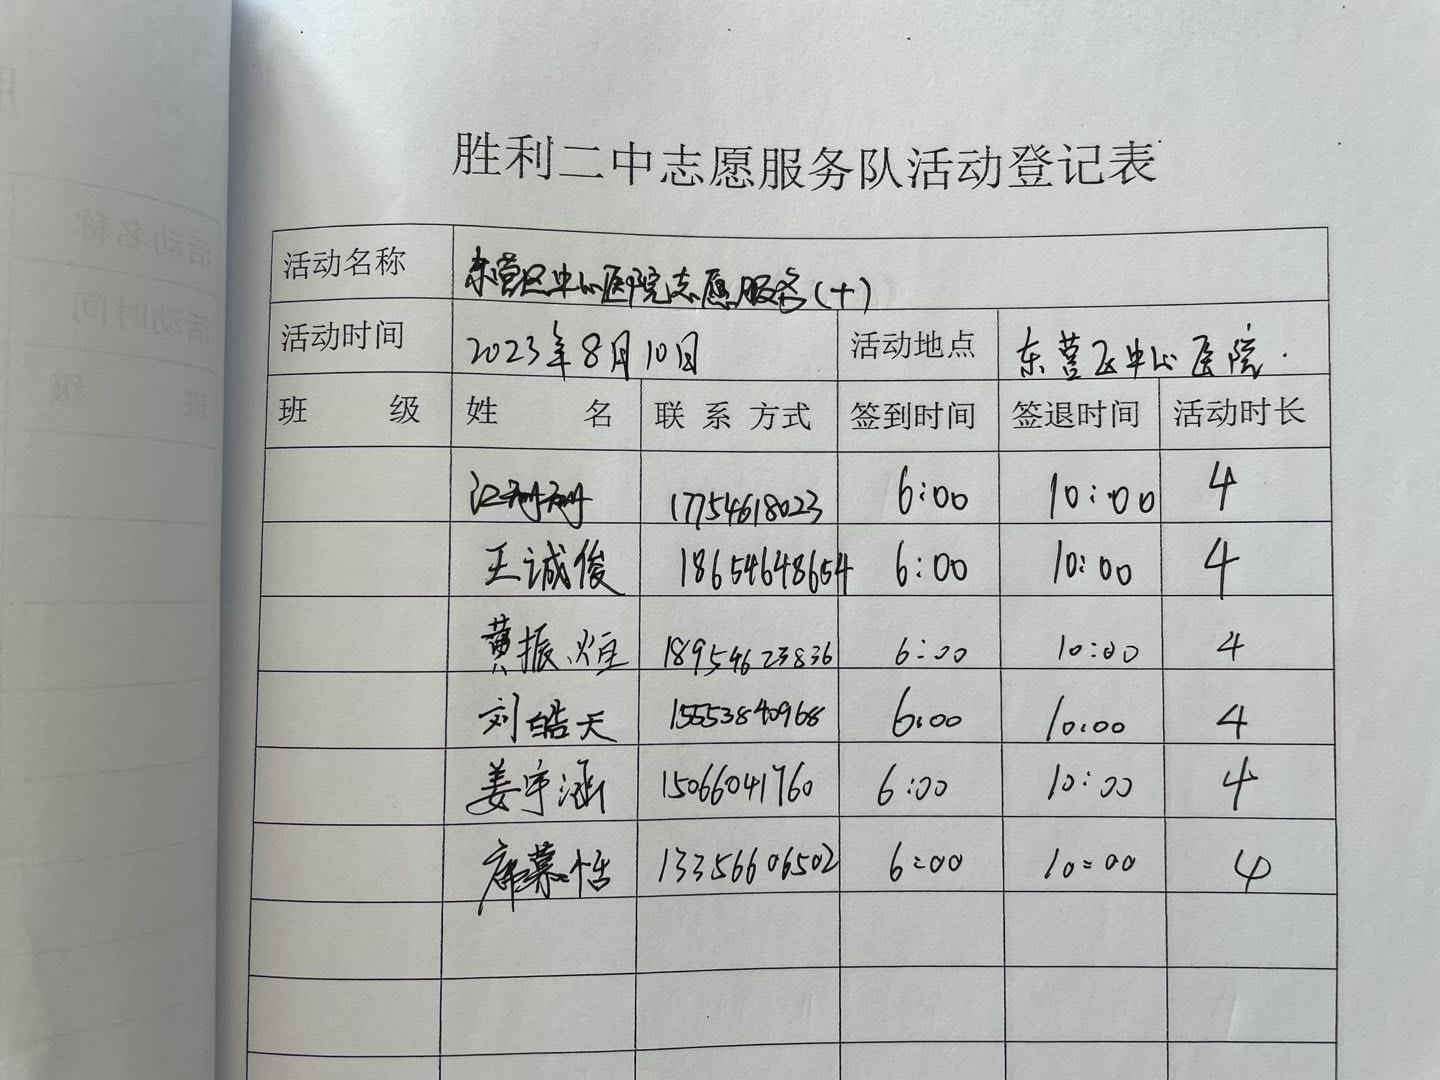 胜利二中志愿服务队活动登记表
活动名称 东营区中心医院志愿服务(十)
活动时间 2023年8月10日 活动地点 东营区中心医院.
班 级 姓 名 联 系 方式 签到时间 签退时间 活动时长
17754618023 6:00 10:00 4
王诚俊 18654648654 6:00 10:00 4
黄振烜 18954623836 6:00 10:00 4
刘皓天 15553840968 6:00 10:00 4
姜宇涵 15066041760 6:00 10:00 4
慕恬 13356606502 6:00 10:00 4
活动名称
活动时间
班 级